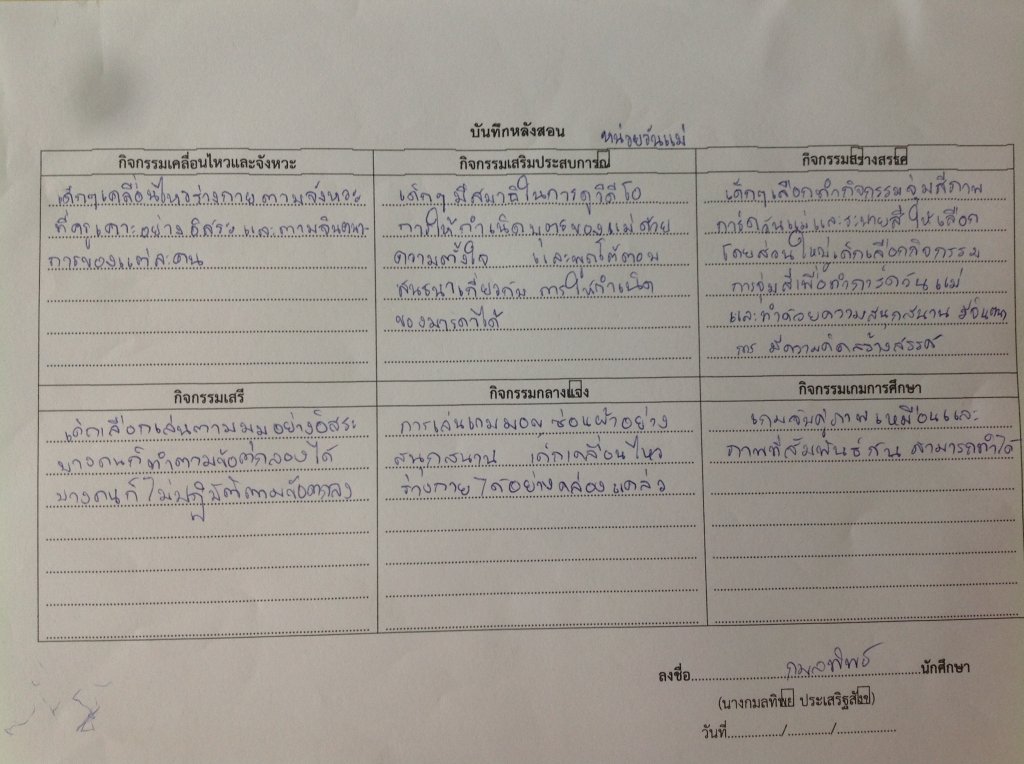 บันทึกหลังสอน หน่วยวันแม่
กิจกรรมเคลื่อนไหวและจังหวะ
เด็กๆเคลื่อนไหวร่างกายตามจังหวะ
ที่ครูเคาะอย่างอิสระและตามจินตนา-
การของแต่ละคน
กิจกรรมเสริมประสบการณ์
เด็กๆมีสมาธิในการดูวิดีโอ
การให้กำเนิดบุตรของแม่ด้วย
ความตั้งใจ และพูดโต้ตอบ
สนทนาเกี่ยวกับ การให้กำเนิด
ของมารดาได้
กิจกรรมสร้างสรรค์
เด็กๆเลือกทำกิจกรรมจุ่มสีภาพ
การ์ดวันแม่และระบายสี ให้เลือก
โดยส่วนใหญ่เด็กเลือกกิจกรรม
การจุ่มสีเพื่อทำการ์ดวันแม่
และทำด้วยความสนุกสนาน มีจินตนา
การ มีความคิดสร้างสรรค์
กิจกรรมเสรี
เด็กเลือกเล่นตามมุมอย่างอิสระ
บางคนก็ทำตามข้อตกลองได้
บางคนก็ไม่ปฏิบัติตามข้อตกลง
กิจกรรมกลางแจ้ง
การเล่นเกมมอญซ่อนผ้าอย่าง
สนุกสนาน เด็กเคลื่อนไหว
ร่างกายได้อย่างคล่องแคล่ว
กิจกรรมเกมการศึกษา
เกมจับคู่ภาพเหมือนและ
ภาพที่สัมพันธ์กัน สามารถทำได้
ลงชื่อ กมลทิพย์ นักศึกษา
(นางกมลทิพย์ ประเสริฐสังข์)
วันที่............../............/.................